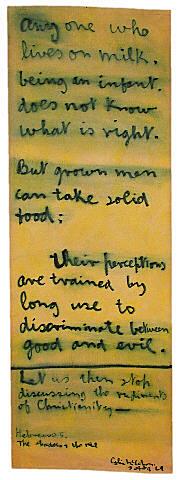 any one who
lives on milk.
being an infant.
does not know
what is right.
But grown men
can take solid
food:
their perceptions
are trained by
long use to
discriminate between
good and evil.
Let us then stop
discussing the rudiments
of Christianity—
Hebrews 5.